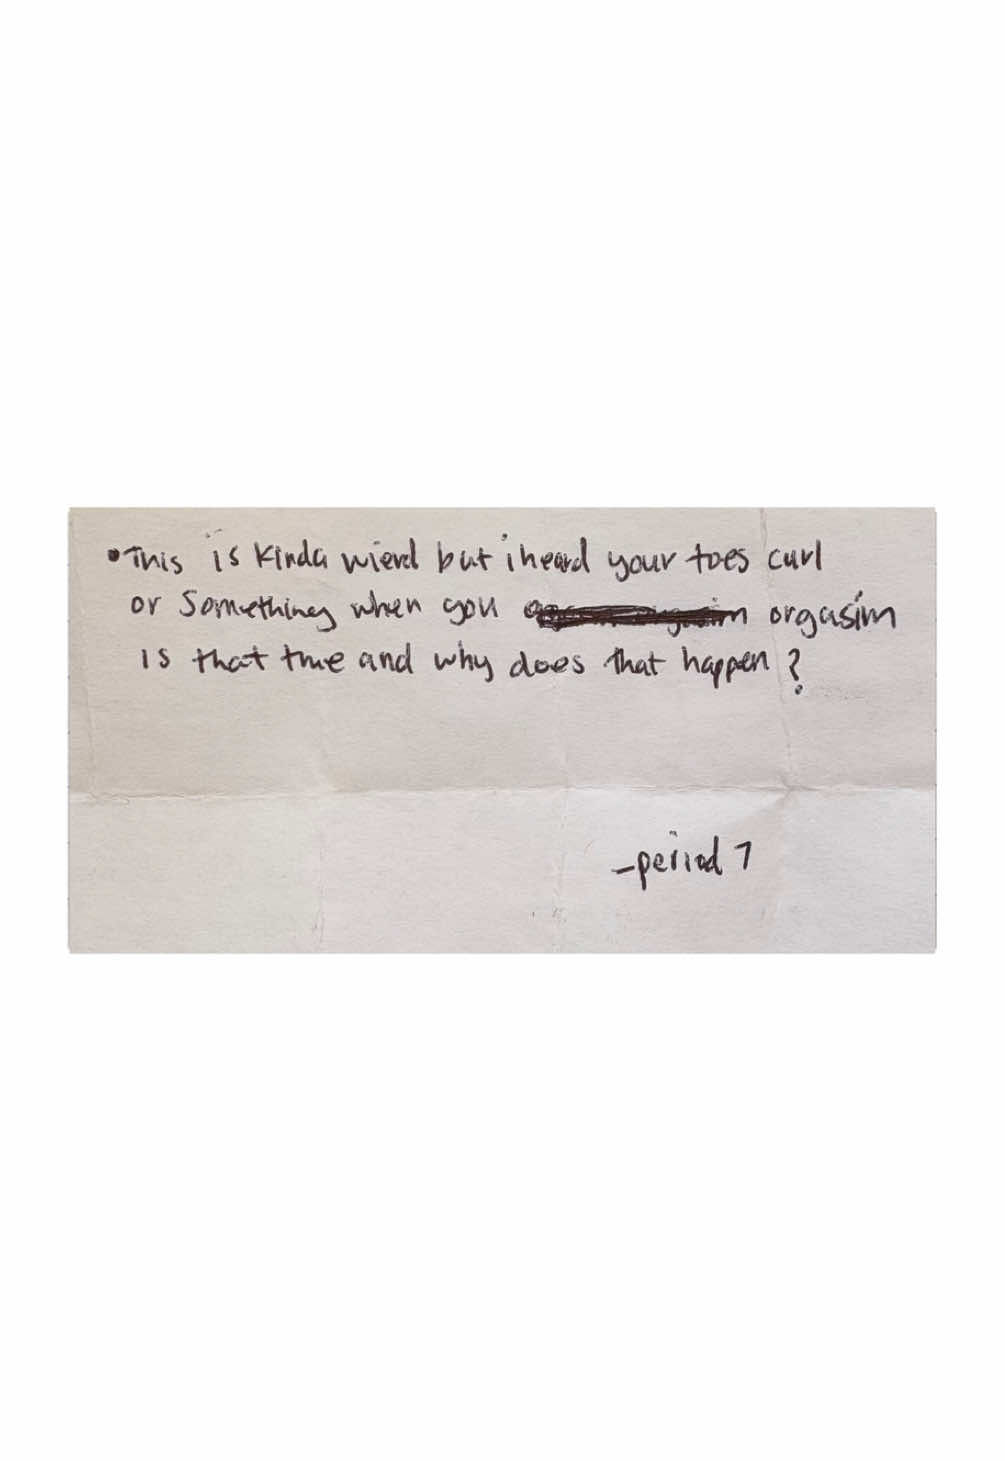 •This is kinda wierd but i heard your toes curl
or Something when you orgasim
is that true and why does that happen?
-period 7